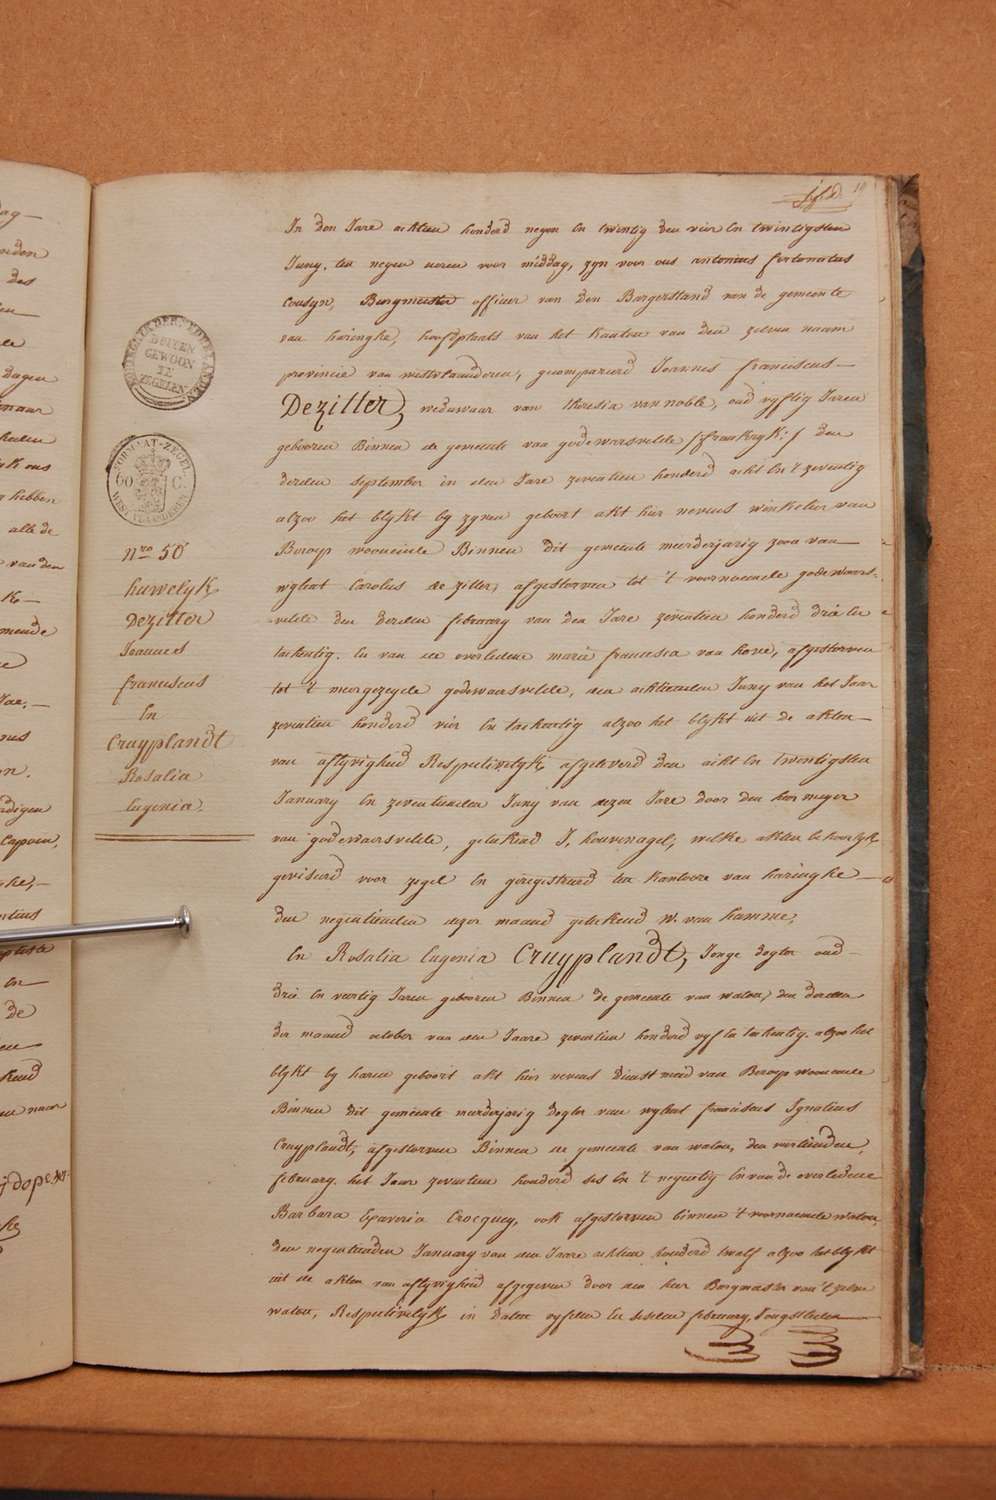 In den Jare achtien honderd negen En twintig den vier En twintigsten
Juny, ten negen uren voor middag, zyn voor ons antonius fortonatus
Cousyn, Burgmeester officier van den Borgerstand van de gemeente
van haringhe, hoofdplaats van het kanton van den zelven naam
provincie van westvlaanderen, gecompareerd Joannes franciscus —
Dezitter, weduwaar van theresia van noble, oud vyftig Jaren
geboren Binnen de gemeente van godewaersvelde (frankryk) den
derden september in den Jare zeventien honderd acht En 't zeventig
alzoo het blykt by zynen geboort akt hier nevens winkelier van
Beroep woonende Binnen dit gemeente meerderjarig zoon van —
wylent Carolus de zitter, afgestorven tot 't voornoemde godewaers-
velde den derden february van den Jare zeventien honderd drie En
tachentig. En van de overledene marie francisca van hove, afgestorven
tot 't meergezegde godewaersvelde, den achtienden Juny van het Jaar
zeventien honderd vier En tachentig alzoo het blykt uit de akten —
van aflyvigheid Respectivelyk afgeleverd den acht En twentigsten
January En zeventienden Juny van dezen Jare door den heer meyer
van godewaersvelde, geteekend J. houvenagel, welke akten behoorlyk
geviseerd voor zegel En geregistreerd ten kantoore van haringhe —
den negentienden dezer maand geteekend W. van hamme,
En Rosalia Eugenia Cruyplandt, Jonge dogter oud —
drie En veertig Jaren geboren Binnen de gemeente van watou, den derden
der maand october van den Jaare zeventien honderd vyf En tachentig. alzoo het
blykt by haren geboort akt hier nevens dienstmeid van Beroep woonende
Binnen dit gemeente meerderjarig dogter van wylent franciscus Ignatius
Cruyplandt, afgestorven Binnen de gemeente van watou, den veertienden
february het Jaar zeventien honderd ses En 't negentig En van de overledene
Barbara Crocquey, ook afgestorven binnen 't voornoemde watou,
den negentienden January van den Jaare achtien honderd twalf alzoo het blykt
uit de akten van aflyvigheid afgegeven door den heer Borgmeester van 't zelve
watou, Respectivelyk in daten vyftien En sesden february, Jongstleden
BUITEN
GEWOON
TE
ZEGELEN
FORMAAT-ZEGEL
60 C.
WEST VLAANDEREN
Nro 50
huwelyk
Dezitter
Joannes
franciscus
En
Cruyplandt
Rosalia
Eugenia